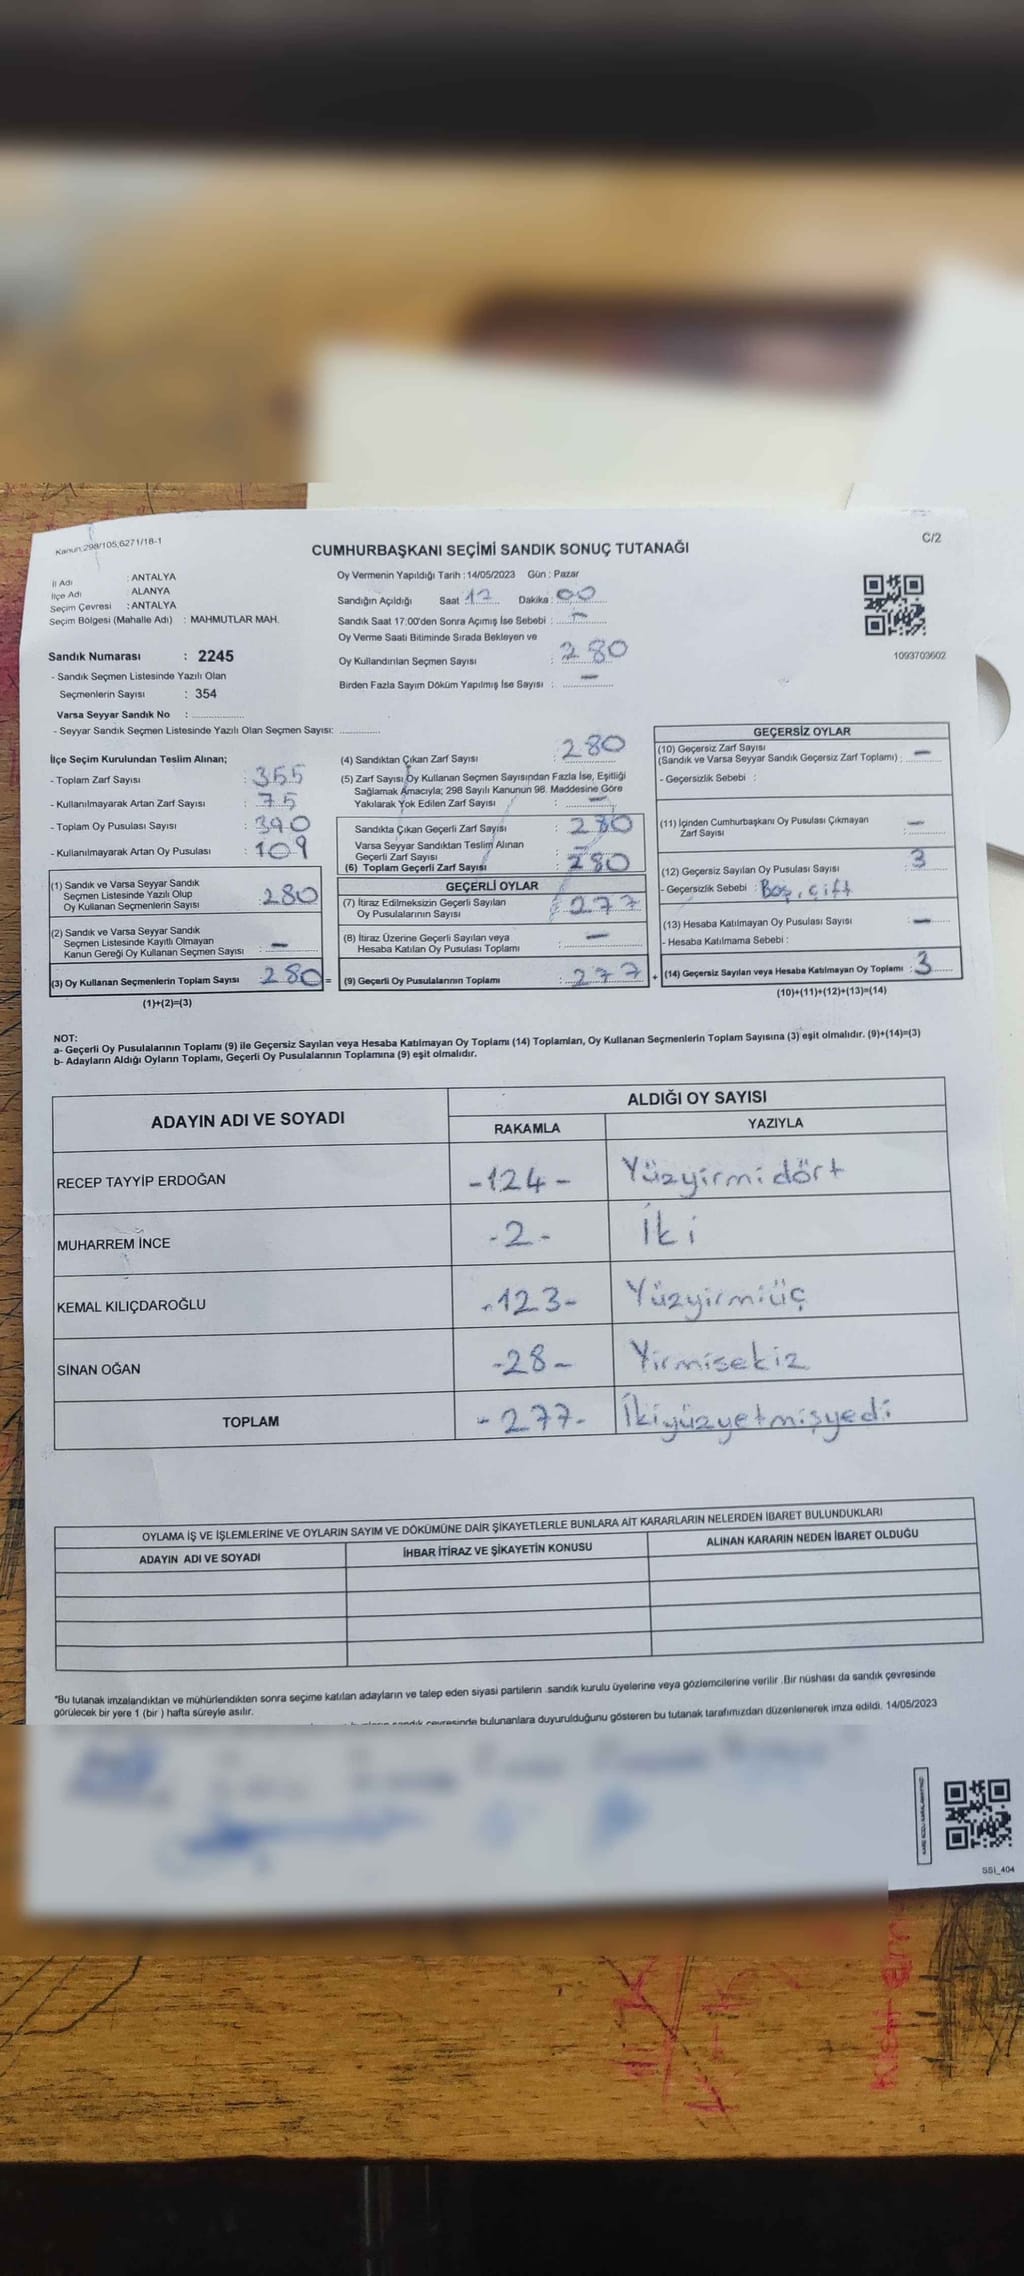 Kanun.298/105,6271/18-1
C/2
CUMHURBAŞKANI SEÇİMİ SANDIK SONUÇ TUTANAĞI
İl Adı : ANTALYA
İlçe Adı : ALANYA
Seçim Çevresi : ANTALYA
Seçim Bölgesi (Mahalle Adı) : MAHMUTLAR MAH.
Sandık Numarası : 2245
- Sandık Seçmen Listesinde Yazılı Olan
Seçmenlerin Sayısı : 354
Varsa Seyyar Sandık No :
- Seyyar Sandık Seçmen Listesinde Yazılı Olan Seçmen Sayısı:
Oy Vermenin Yapıldığı Tarih :14/05/2023 Gün : Pazar
Sandığın Açıldığı Saat 12 Dakika : 00
Sandık Saat 17:00'den Sonra Açımış İse Sebebi : -
Oy Verme Saati Bitiminde Sırada Bekleyen ve
Oy Kullandırılan Seçmen Sayısı : 280
Birden Fazla Sayım Döküm Yapılmış İse Sayısı : -
1093703602
İlçe Seçim Kurulundan Teslim Alınan;
- Toplam Zarf Sayısı : 355
- Kullanılmayarak Artan Zarf Sayısı : 75
- Toplam Oy Pusulası Sayısı : 390
- Kullanılmayarak Artan Oy Pusulası : 109
(1) Sandık ve Varsa Seyyar Sandık
Seçmen Listesinde Yazılı Olup
Oy Kullanan Seçmenlerin Sayısı : 280
(2) Sandık ve Varsa Seyyar Sandık
Seçmen Listesinde Kayıtlı Olmayan
Kanun Gereği Oy Kullanan Seçmen Sayısı : -
(3) Oy Kullanan Seçmenlerin Toplam Sayısı 280 =
(1)+(2)=(3)
(4) Sandıktan Çıkan Zarf Sayısı : 280
(5) Zarf Sayısı Oy Kullanan Seçmen Sayısından Fazla İse, Eşitliği
Sağlamak Amacıyla; 298 Sayılı Kanunun 98. Maddesine Göre
Yakılarak Yok Edilen Zarf Sayısı : -
Sandıkta Çıkan Geçerli Zarf Sayısı : 280
Varsa Seyyar Sandıktan Teslim Alınan
Geçerli Zarf Sayısı : -
(6) Toplam Geçerli Zarf Sayısı : 280
GEÇERLİ OYLAR
(7) İtiraz Edilmeksizin Geçerli Sayılan
Oy Pusulalarının Sayısı : 277
(8) İtiraz Üzerine Geçerli Sayılan veya
Hesaba Katılan Oy Pusulası Toplamı : -
(9) Geçerli Oy Pusulalarının Toplamı : 277 +
GEÇERSİZ OYLAR
(10) Geçersiz Zarf Sayısı
(Sandık ve Varsa Seyyar Sandık Geçersiz Zarf Toplamı) : -
- Geçersizlik Sebebi :
(11) İçinden Cumhurbaşkanı Oy Pusulası Çıkmayan
Zarf Sayısı : -
(12) Geçersiz Sayılan Oy Pusulası Sayısı : 3
- Geçersizlik Sebebi : Boş, çift
(13) Hesaba Katılmayan Oy Pusulası Sayısı : -
- Hesaba Katılmama Sebebi :
(14) Geçersiz Sayılan veya Hesaba Katılmayan Oy Toplamı : 3
(10)+(11)+(12)+(13)=(14)
NOT:
a- Geçerli Oy Pusulalarının Toplamı (9) ile Geçersiz Sayılan veya Hesaba Katılmayan Oy Toplamı (14) Toplamları, Oy Kullanan Seçmenlerin Toplam Sayısına (3) eşit olmalıdır. (9)+(14)=(3)
b- Adayların Aldığı Oyların Toplamı, Geçerli Oy Pusulalarının Toplamına (9) eşit olmalıdır.
ADAYIN ADI VE SOYADI
ALDIĞI OY SAYISI
RAKAMLA YAZIYLA
RECEP TAYYİP ERDOĞAN -124- Yüzyirmidört
MUHARREM İNCE -2- İki
KEMAL KILIÇDAROĞLU -123- Yüzyirmiüç
SİNAN OĞAN -28- Yirmisekiz
TOPLAM -277- İkiyüzyetmişyedi
OYLAMA İŞ VE İŞLEMLERİNE VE OYLARIN SAYIM VE DÖKÜMÜNE DAİR ŞİKAYETLERLE BUNLARA AİT KARARLARIN NELERDEN İBARET BULUNDUKLARI
ADAYIN ADI VE SOYADI İHBAR İTİRAZ VE ŞİKAYETİN KONUSU ALINAN KARARIN NEDEN İBARET OLDUĞU
*Bu tutanak imzalandıktan ve mühürlendikten sonra seçime katılan adayların ve talep eden siyasi partilerin sandık kurulu üyelerine veya gözlemcilerine verilir .Bir nüshası da sandık çevresinde
görülecek bir yere 1 (bir ) hafta süreyle asılır.
sandık çevresinde bulunanlara duyurulduğunu gösteren bu tutanak tarafımızdan düzenlenerek imza edildi. 14/05/2023
SSİ_404